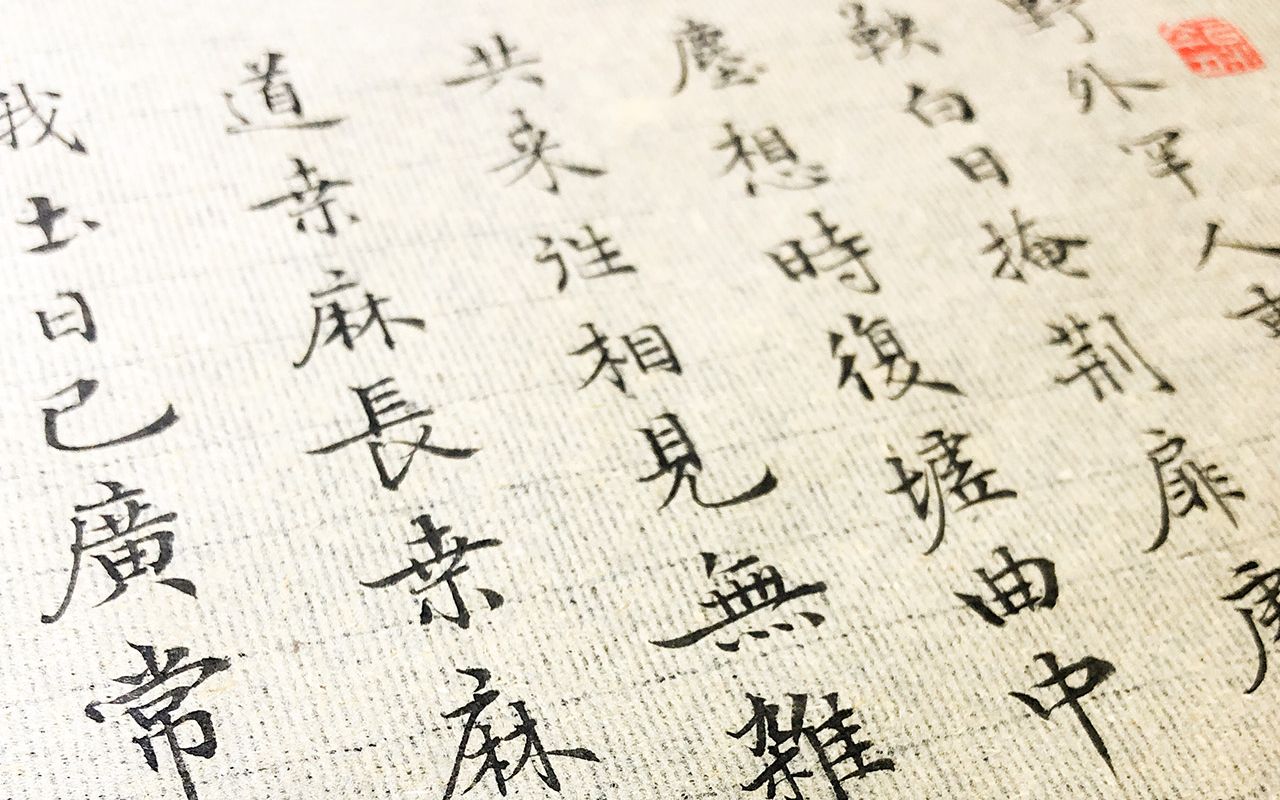 野外罕人
鞅白日掩荆扉
塵想時復墟曲中
共来往相見無雜
道桒麻長桒麻
我土日已廣常